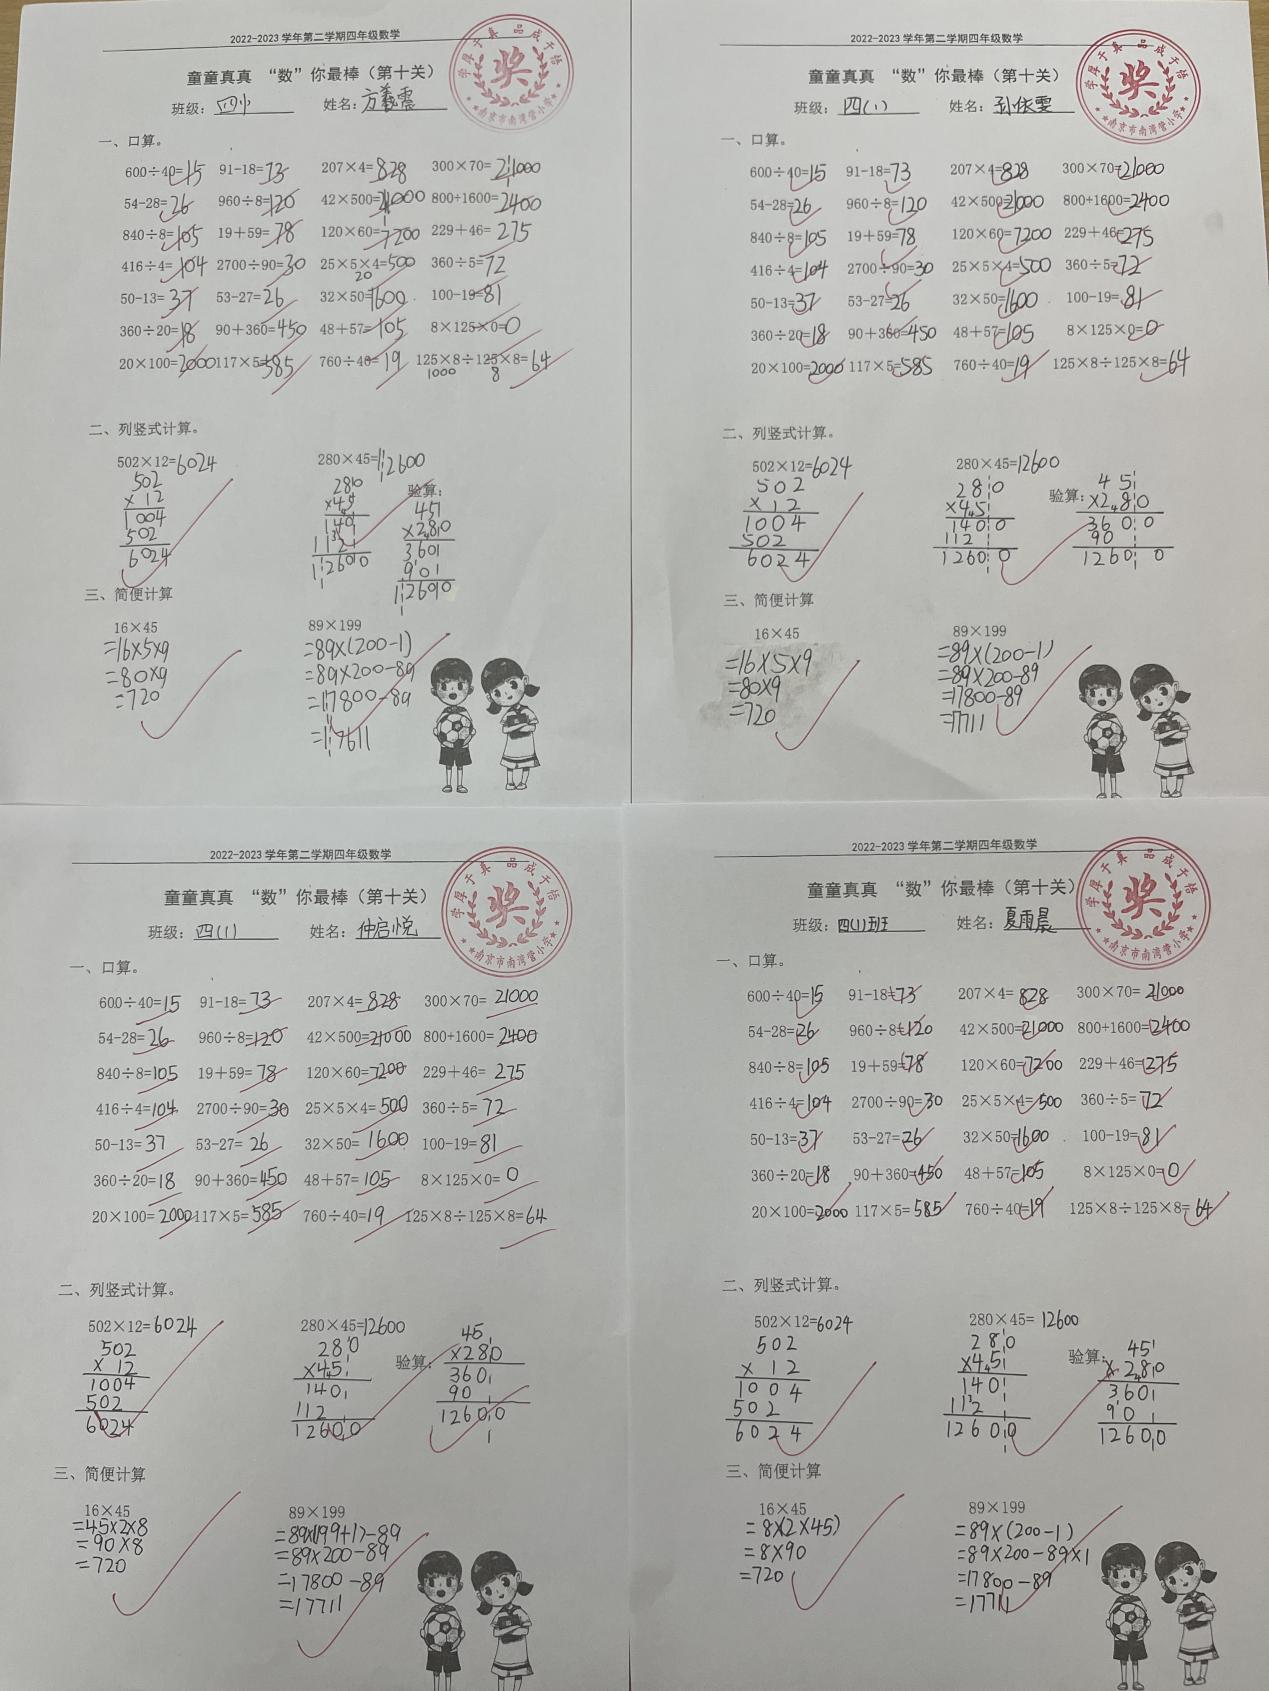 2022-2023 学年第二学期四年级数学
童童真真 “数”你最棒（第十关）
班级：四(1) 姓名：方羲震
学厚于真 品成于悟
奖
南京市南湾营小学
一、口算。
600÷40=15 91-18=73 207×4=828 300×70=21000
54-28=26 960÷8=120 42×500=21000 800+1600=2400
840÷8=105 19+59=78 120×60=7200 229+46=275
416÷4=104 2700÷90=30 25×5×4=500 360÷5=72
20
50-13=37 53-27=26 32×50=1600 100-19=81
360÷20=18 90+360=450 48+57=105 8×125×0=0
20×100=2000 117×5=585 760÷40=19 125×8÷125×8=64
1000 8
二、列竖式计算。
502×12=6024 280×45=12600
502 280 验算：
×12 ×45 45
1004 140 ×280
502 112 360
6024 12600 90
12600
三、简便计算
16×45 89×199
=16×5×9 =89×(200-1)
=80×9 =89×200-89
=720 =17800-89
=17611
2022-2023 学年第二学期四年级数学
童童真真 “数”你最棒（第十关）
班级：四(1) 姓名：孙依雯
学厚于真 品成于悟
奖
南京市南湾营小学
一、口算。
600÷40=15 91-18=73 207×4=828 300×70=21000
54-28=26 960÷8=120 42×500=21000 800+1600=2400
840÷8=105 19+59=78 120×60=7200 229+46=275
416÷4=104 2700÷90=30 25×5×4=500 360÷5=72
50-13=37 53-27=26 32×50=1600 100-19=81
360÷20=18 90+360=450 48+57=105 8×125×0=0
20×100=2000 117×5=585 760÷40=19 125×8÷125×8=64
二、列竖式计算。
502×12=6024 280×45=12600
502 280 验算： 45
×12 ×45 ×280
1004 1400 3600
502 112 90
6024 12600 12600
三、简便计算
16×45 89×199
=16×5×9 =89×(200-1)
=80×9 =89×200-89
=720 =17800-89
=17711
2022-2023 学年第二学期四年级数学
童童真真 “数”你最棒（第十关）
班级：四(1) 姓名：仲启悦
学厚于真 品成于悟
奖
南京市南湾营小学
一、口算。
600÷40=15 91-18=73 207×4=828 300×70=21000
54-28=26 960÷8=120 42×500=21000 800+1600=2400
840÷8=105 19+59=78 120×60=7200 229+46=275
416÷4=104 2700÷90=30 25×5×4=500 360÷5=72
50-13=37 53-27=26 32×50=1600 100-19=81
360÷20=18 90+360=450 48+57=105 8×125×0=0
20×100=2000 117×5=585 760÷40=19 125×8÷125×8=64
二、列竖式计算。
502×12=6024 280×45=12600
502 280 验算： 45
×12 ×45 ×280
1004 140 360
502 112 90
6024 12600 12600
三、简便计算
16×45 89×199
=45×2×8 =89×(199+1)-89
=90×8 =89×200-89
=720 =17800-89
=17711
2022-2023 学年第二学期四年级数学
童童真真 “数”你最棒（第十关）
班级：四(1)班 姓名：夏雨晨
学厚于真 品成于悟
奖
南京市南湾营小学
一、口算。
600÷40=15 91-18=73 207×4=828 300×70=21000
54-28=26 960÷8=120 42×500=21000 800+1600=2400
840÷8=105 19+59=78 120×60=7200 229+46=275
416÷4=104 2700÷90=30 25×5×4=500 360÷5=72
50-13=37 53-27=26 32×50=1600 100-19=81
360÷20=18 90+360=450 48+57=105 8×125×0=0
20×100=2000 117×5=585 760÷40=19 125×8÷125×8=64
二、列竖式计算。
502×12=6024 280×45=12600
502 280 验算： 45
×12 ×45 ×280
1004 140 360
502 112 90
6024 12600 12600
三、简便计算
16×45 89×199
=8×(2×45) =89×(200-1)
=8×90 =89×200-89×1
=720 =17800-89
=17711